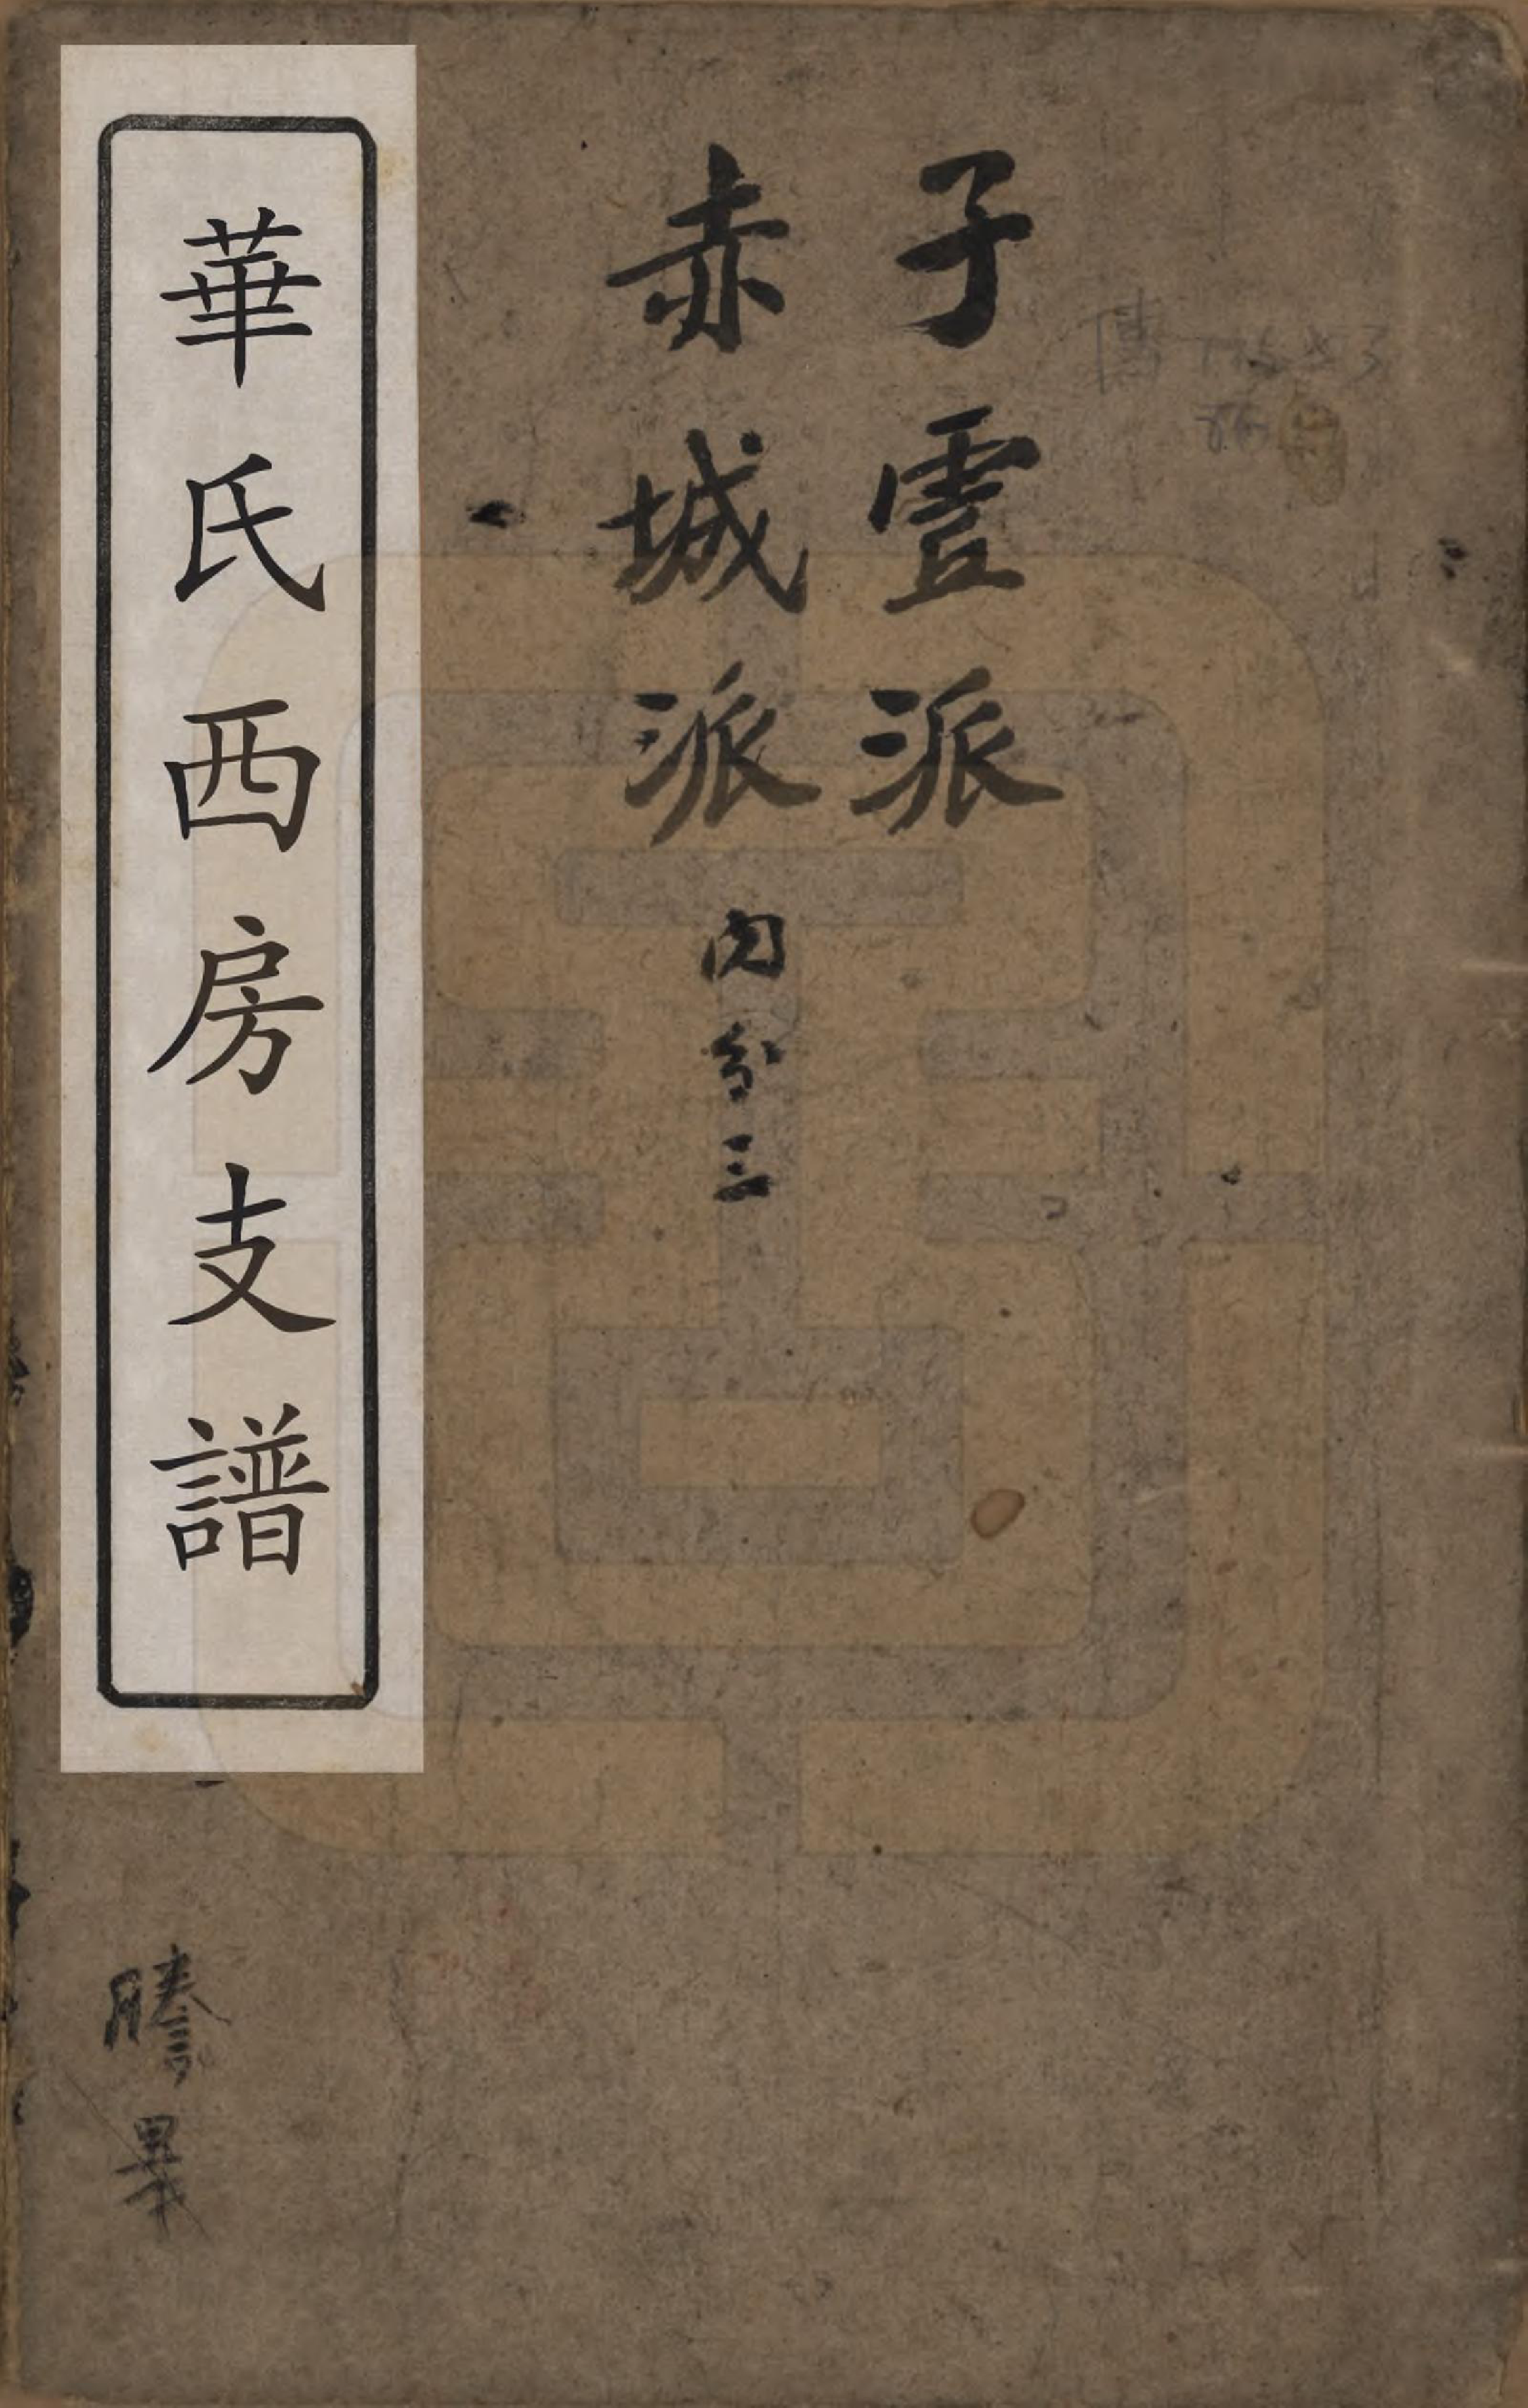 子雲派
赤城派 內分三
華氏西房支譜
謄畢